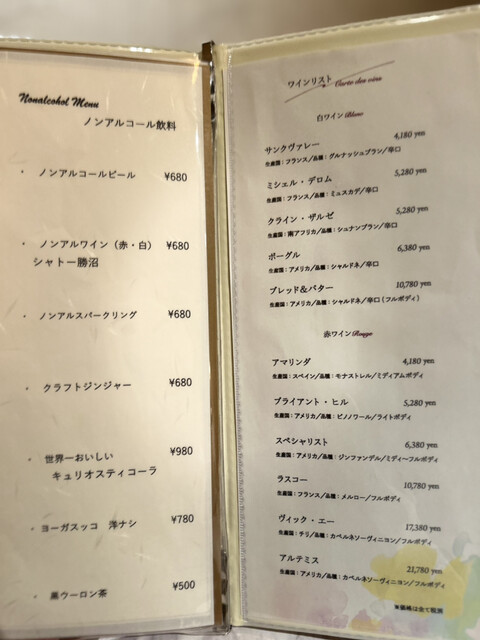 Nonalcohol Menu
ノンアルコール飲料
・ ノンアルコールビール ¥680
・ ノンアルワイン（赤・白） ¥680
シャトー勝沼
・ ノンアルスパークリング ¥680
・ クラフトジンジャー ¥680
・ 世界一おいしい ¥980
キュリオスティコーラ
・ヨーガスッコ 洋ナシ ¥780
・ 黒ウーロン茶 ¥500
ワインリスト Carte des vins
白ワインBlanc
サンクヴァレー 4,180 yen
生産国：フランス/品種：グルナッシュブラン/辛口
ミシェル・デロム 5,280 yen
生産国：フランス/品種：ミュスカデ/辛口
クライン・ザルゼ 5,280 yen
生産国：南アフリカ/品種：シュナンブラン/辛口
ボーグル 6,380 yen
生産国：アメリカ/品種：シャルドネ/辛口
ブレッド&バター 10,780 yen
生産国：アメリカ/品種：シャルドネ/辛口(フルボディ)
赤ワインRouge
アマリンダ 4,180 yen
生産国：スペイン/品種：モナストレル/ミディアムボディ
ブライアント・ヒル 5,280 yen
生産国：アメリカ/品種：ピノワール/ライトボディ
スペシャリスト 6,380 yen
生産国：アメリカ/品種：ジンファンデル/ミディ～フルボディ
ラスコー 10,780 yen
生産国：フランス/品種：メルロー/フルボディ
ヴィック・エー 17,380 yen
生産国：チリ/品種：カベルネソーヴィニヨン/フルボディ
アルテミス 21,780 yen
生産国：アメリカ/品種：カベルネソーヴィニヨン/フルボディ
※価格は全て税別